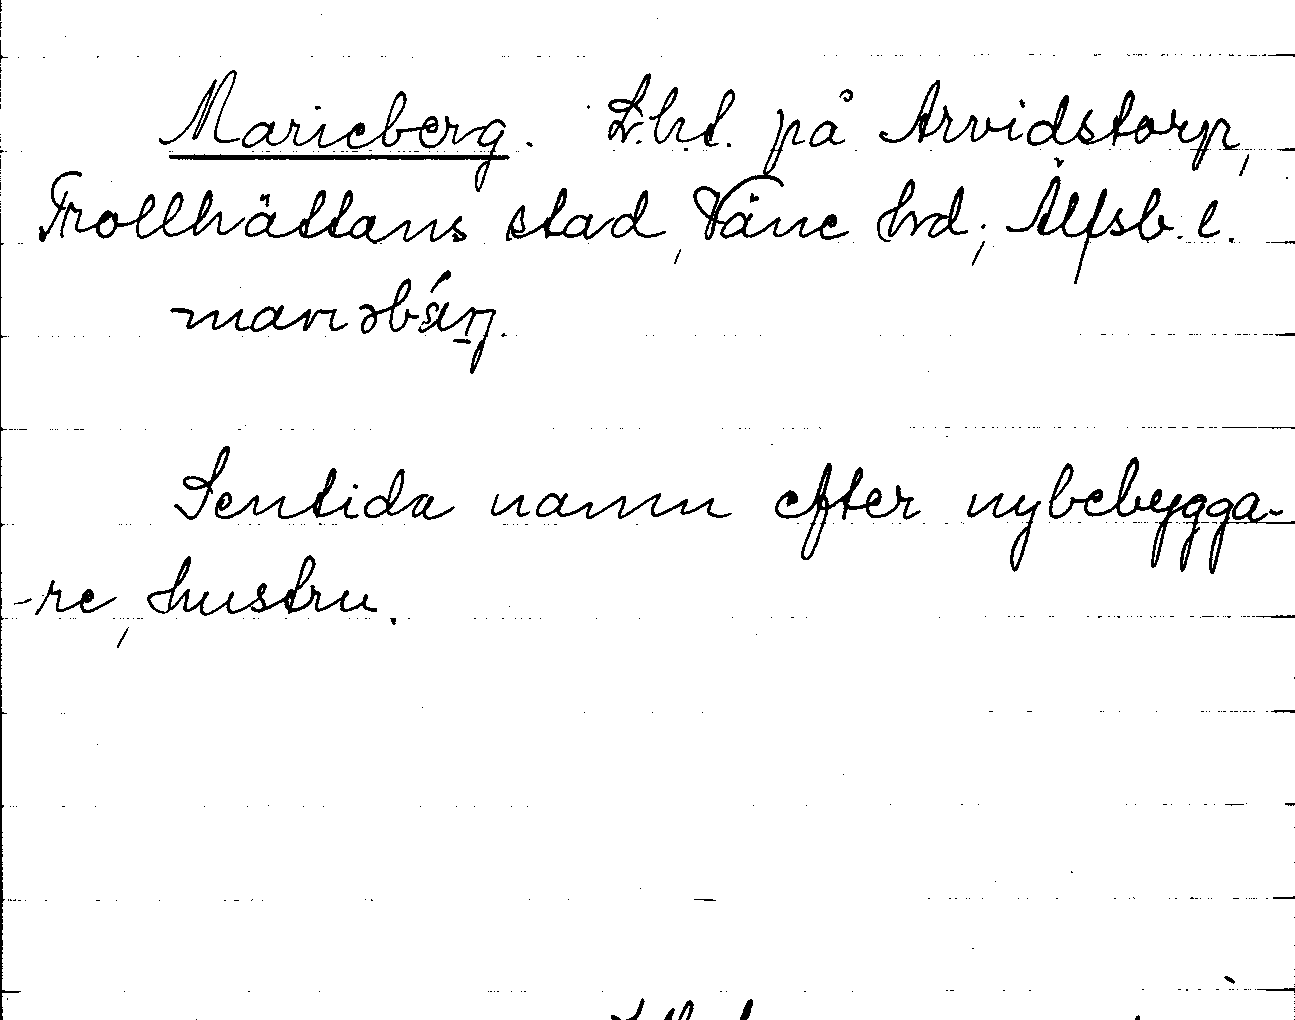 Marieberg. L.ht. på Arvidstorp,
Trollhättans stad, Väne hd, Älfsb. l.
Sentida namn efter nybebygga-
-re, hustru.